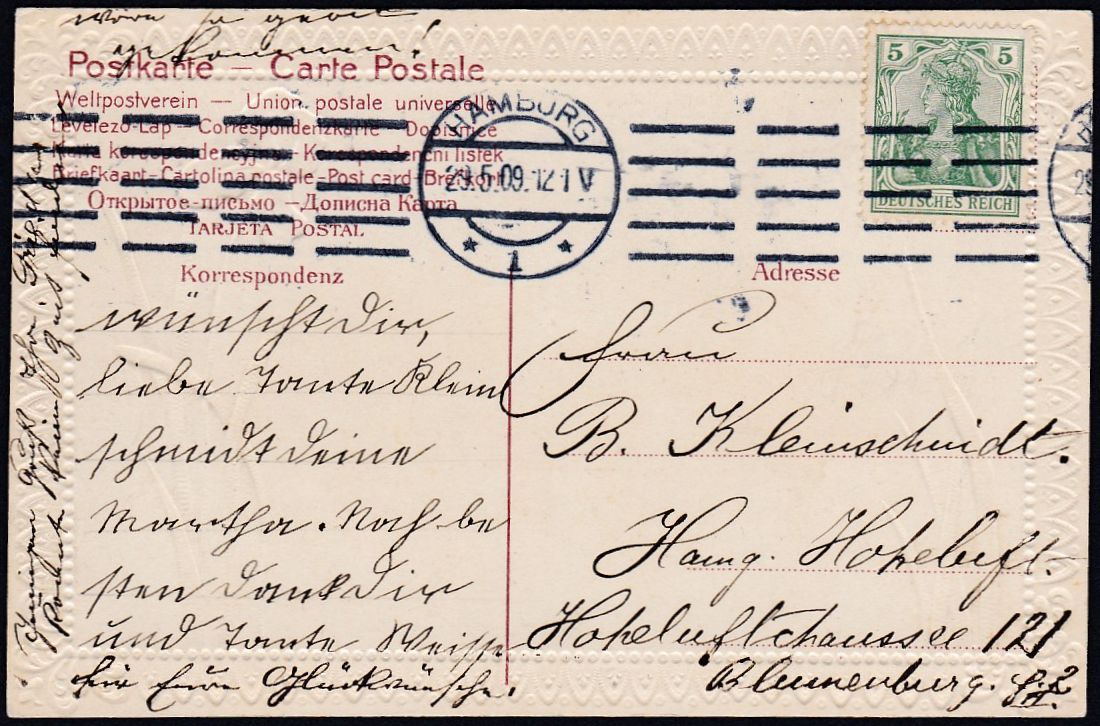 wäre so gerne
gekommen!
Postkarte — Carte Postale
Weltpostverein — Union postale universelle
Levelezo-Lap — Correspondenzkarte — Dopisnice
Karta korespondencyjna — Korespondenční lístek
Briefkaart — Cartolina postale — Post card — Brefkort
Открытое-письмо — Дописна Карта
TARJETA POSTAL
Korrespondenz
wünscht dir,
liebe Tante Klein
schmidt deine
Martha. Noch be
sten Dank dir
und Tante Weisse
für Eure Glückwünsche.
Innigen Gruß
HAMBURG
29.5.09.12-1 V
* 1 *
5 5
DEUTSCHES REICH
Adresse
Frau
B. Kleinschmidt.
Hamg. Hoheluft.
Hoheluftchaussee 121
Blumenburg.